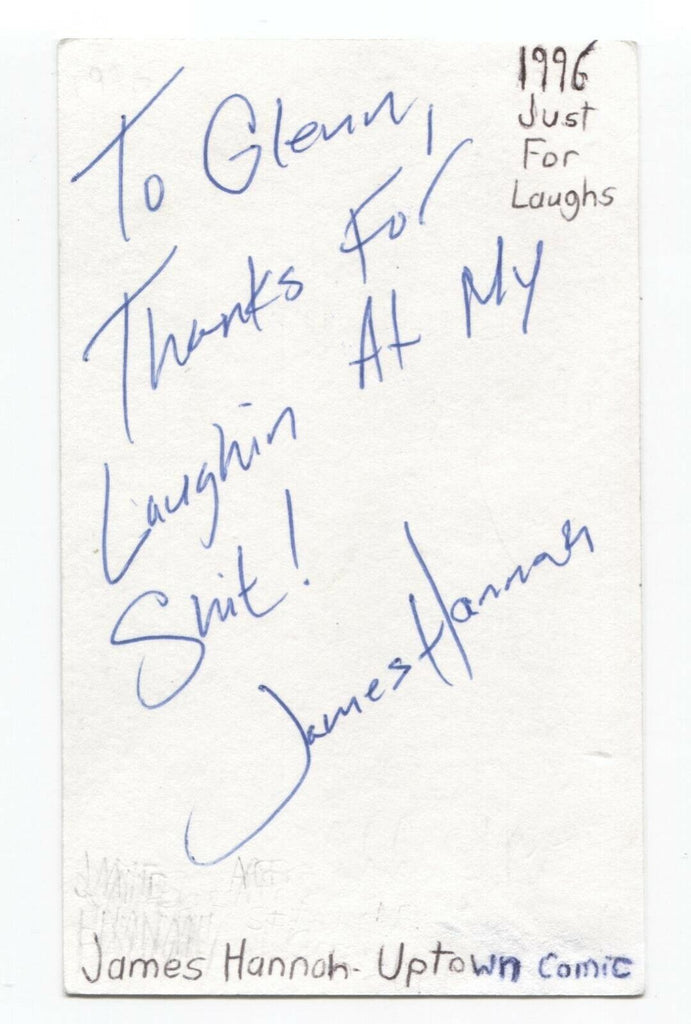 1996
Just
For
Laughs
To Glenn,
Thanks For
At My
Laughin
Shit!
James Hannah
James Hannah - Uptown Comic